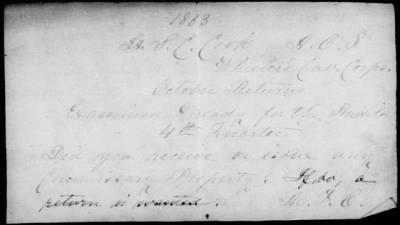 1863
S. C. Cook A. C. S
Wheeler's Cav. Corps.
October Returns
Examined & ready for the Auditor
4th Quarter
Did you receive or issue any
Commissary Property? If so, a
return is wanted.